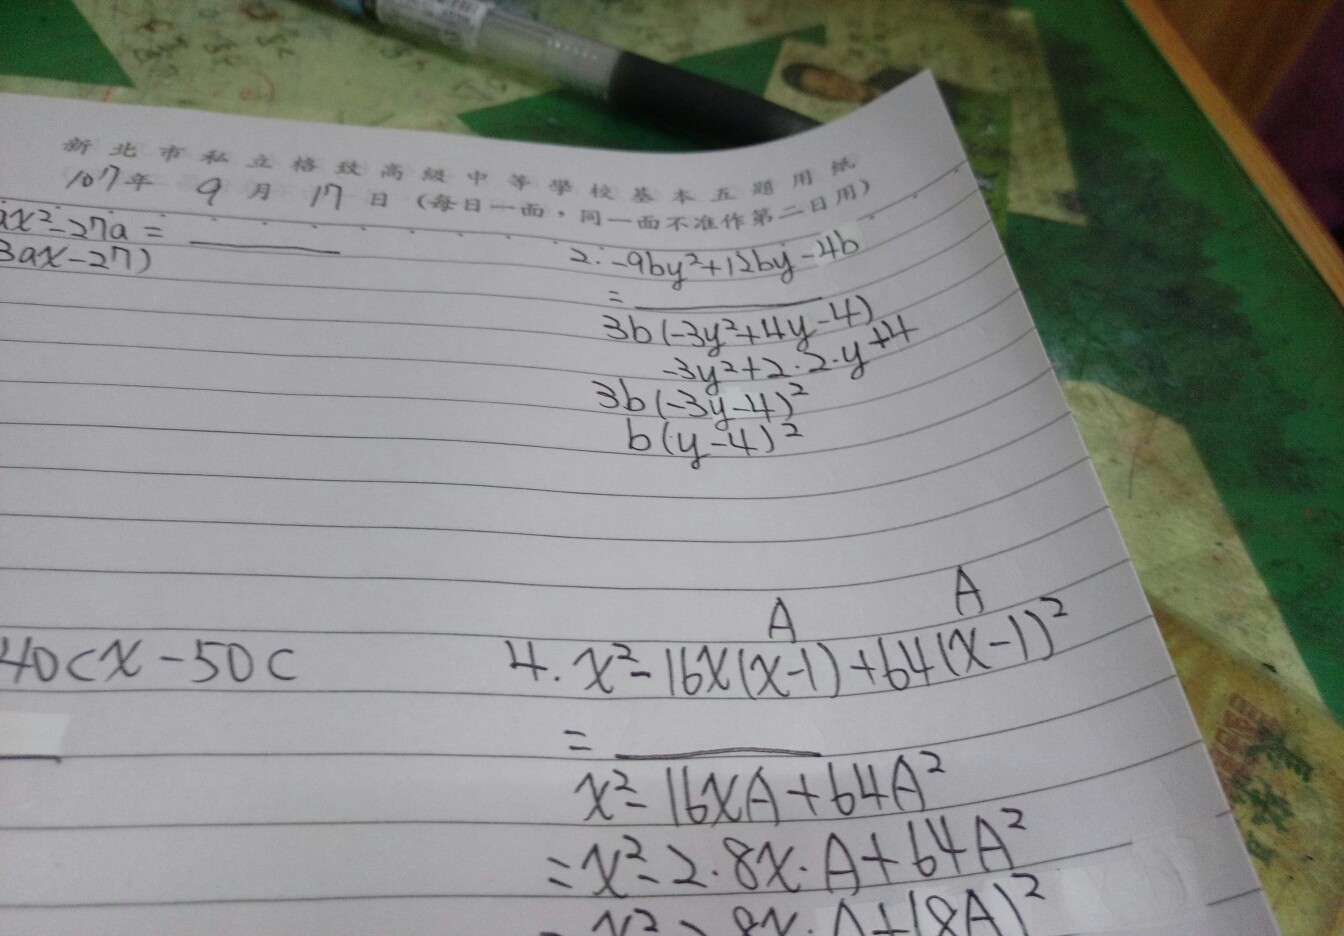 新北市私立格致高級中等學校基本五題用紙
107年 9月 17日（每日一面，同一面不准作第二日用）
ax²-27a =
3ax-27)
2. -9by²+12by-4b
=
3b(-3y²+4y-4)
-3y²+2·2·y+4
3b(-3y-4)²
b(y-4)²
40cx-50c
A A
4. x²-16x(x-1)+64(x-1)²
=
x²-16xA+64A²
=x²-2·8x·A+64A²
8x·A+(8A)²